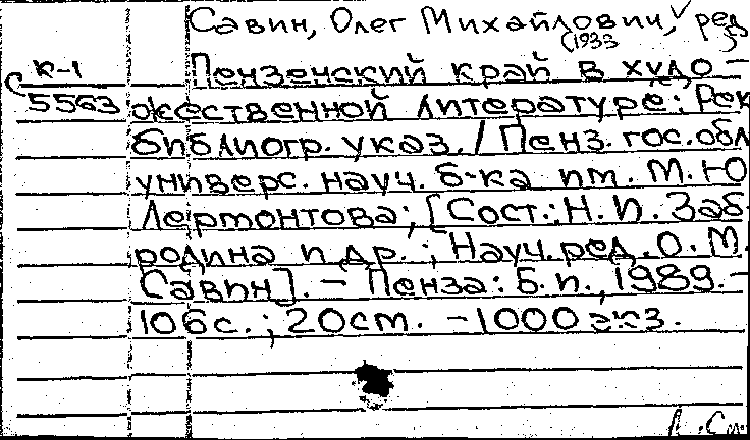 Савин, Олег Михайлович, ред
(1933
К-1
С 5563
Пензенский край в худо-
жественной литературе: Рек
библиогр. указ. / Пенз. гос. обл
универс. науч. б-ка им. М. Ю
Лермонтова; [Сост.: Н. И. Заб-
родина и др.; Науч. ред. О. М.
Савин]. – Пенза: Б. и., 1989. –
106 с.; 20 см. – 1000 экз.